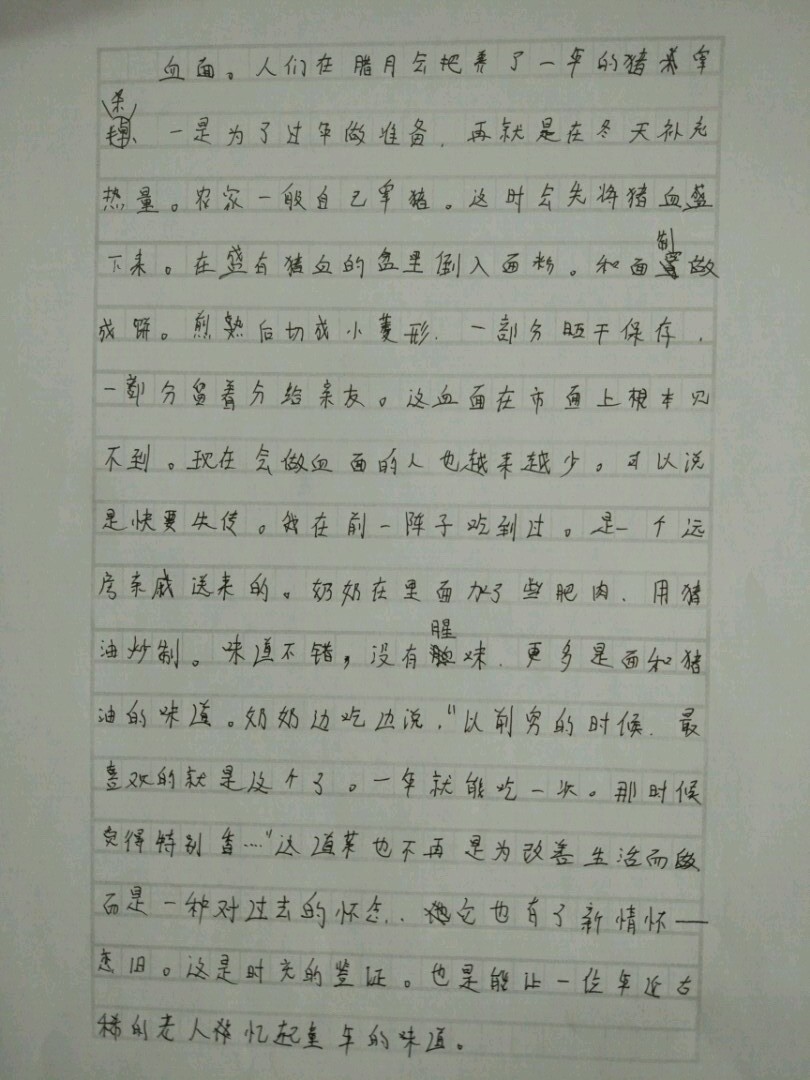 血面。人们在腊月会把养了一年的猪宰
杀
掉、一是为了过年做准备，再就是在冬天补充
热量。农家一般自己宰猪。这时会先将猪血盛
下来。在盛有猪血的盆里倒入面粉。和面
制
做
成饼。煎熟后切成小菱形，一部分晒干保存，
一部分留着分给亲友。这血面在市面上根本见
不到。现在会做血面的人也越来越少。可以说
是快要失传。我在前一阵子吃到过。是一个远
房亲戚送来的。奶奶在里面加了些肥肉、用猪
油炒制。味道不错，没有
腥
味，更多是面和猪
油的味道。奶奶边吃边说，“以前穷的时候，最
喜欢的就是这个了。一年就能吃一次。那时候
觉得特别香…”这道菜也不再是为改善生活而做
而是一种对过去的怀念，它也有了新情怀——
恋旧。这是时光的鉴证。也是能让一位年近古
稀的老人忆起童年的味道。